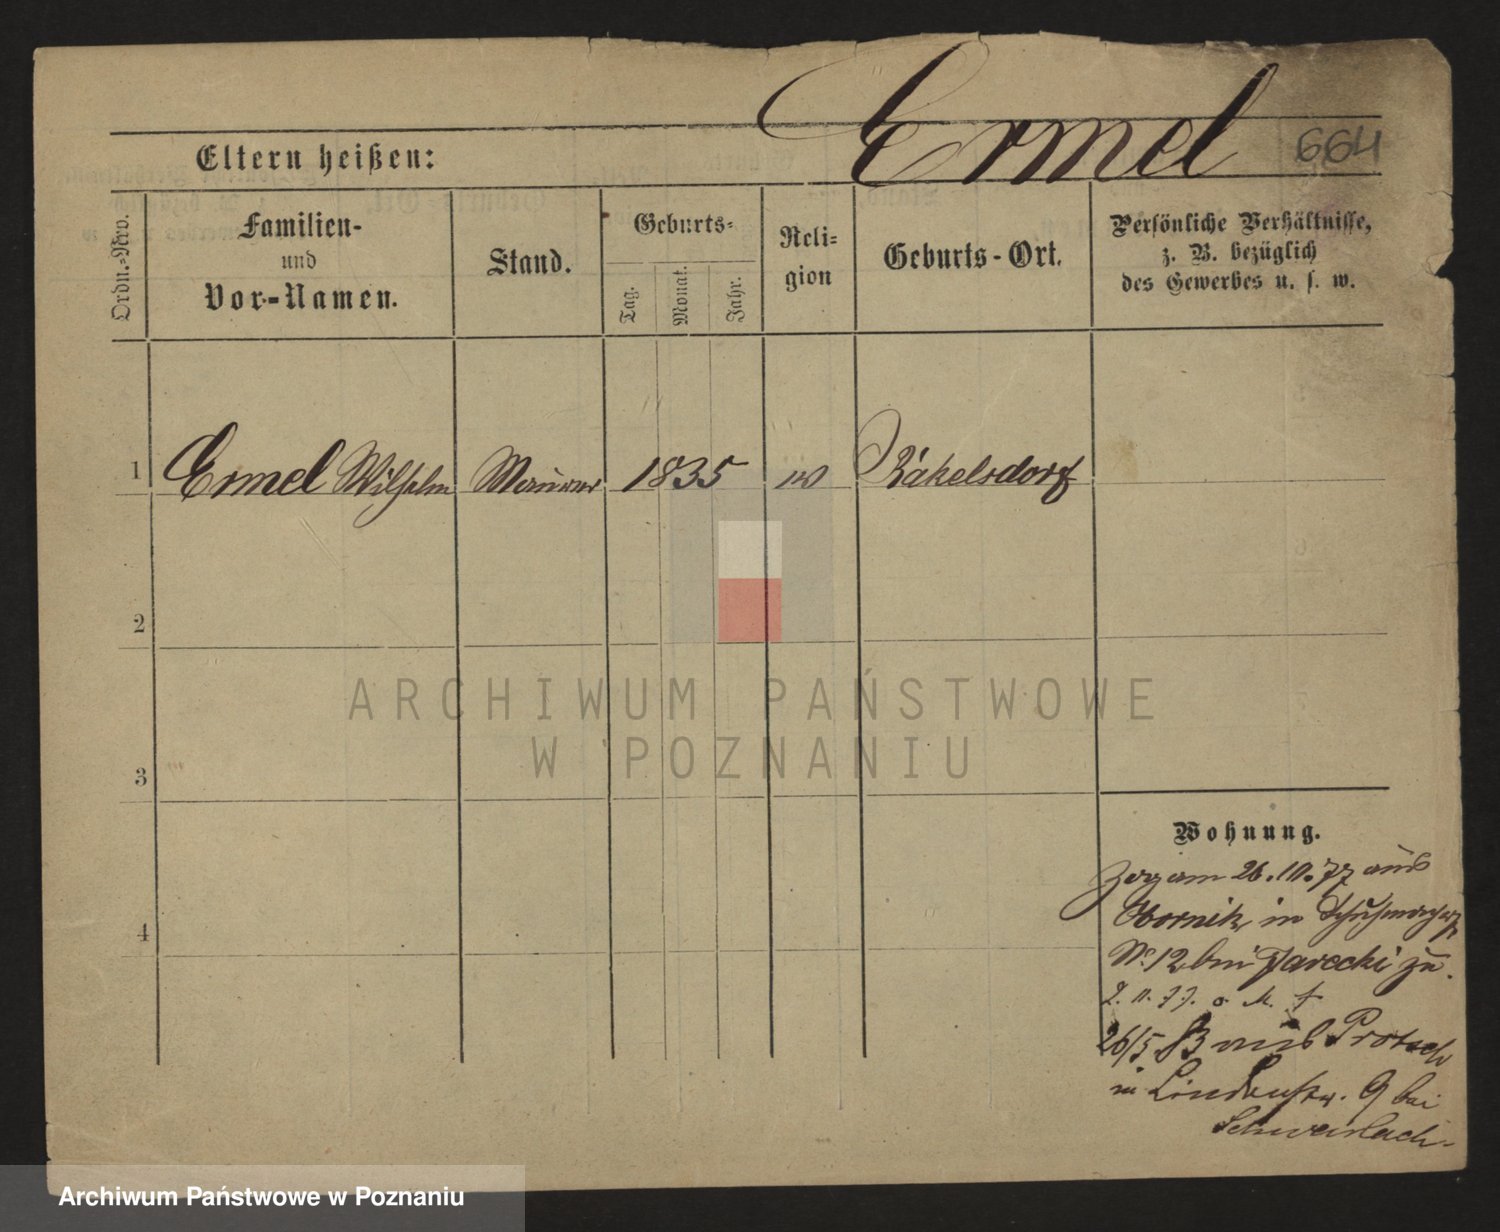 Ermel
664
Eltern heißen:
Ordn.-Nro.
Familien-
und
Vor-Namen.
Stand.
Geburts-
Tag.
Monat.
Jahr.
Reli-
gion
Geburts-Ort.
Persönliche Verhältnisse,
z. B. bezüglich
des Gewerbes u. s. w.
1 Ermel Wilhelm Maurer 1835 Räkelsdorf
2
3
4
ARCHIWUM PAŃSTWOWE
W POZNANIU
Wohnung.
Zog am 26.10.77 aus
Obornik in
No. 12 bei Jarecki zu.
2. 11. 77.
26/5 83 aus Protsch
in Lindenstr. 9 bei
Archiwum Państwowe w Poznaniu